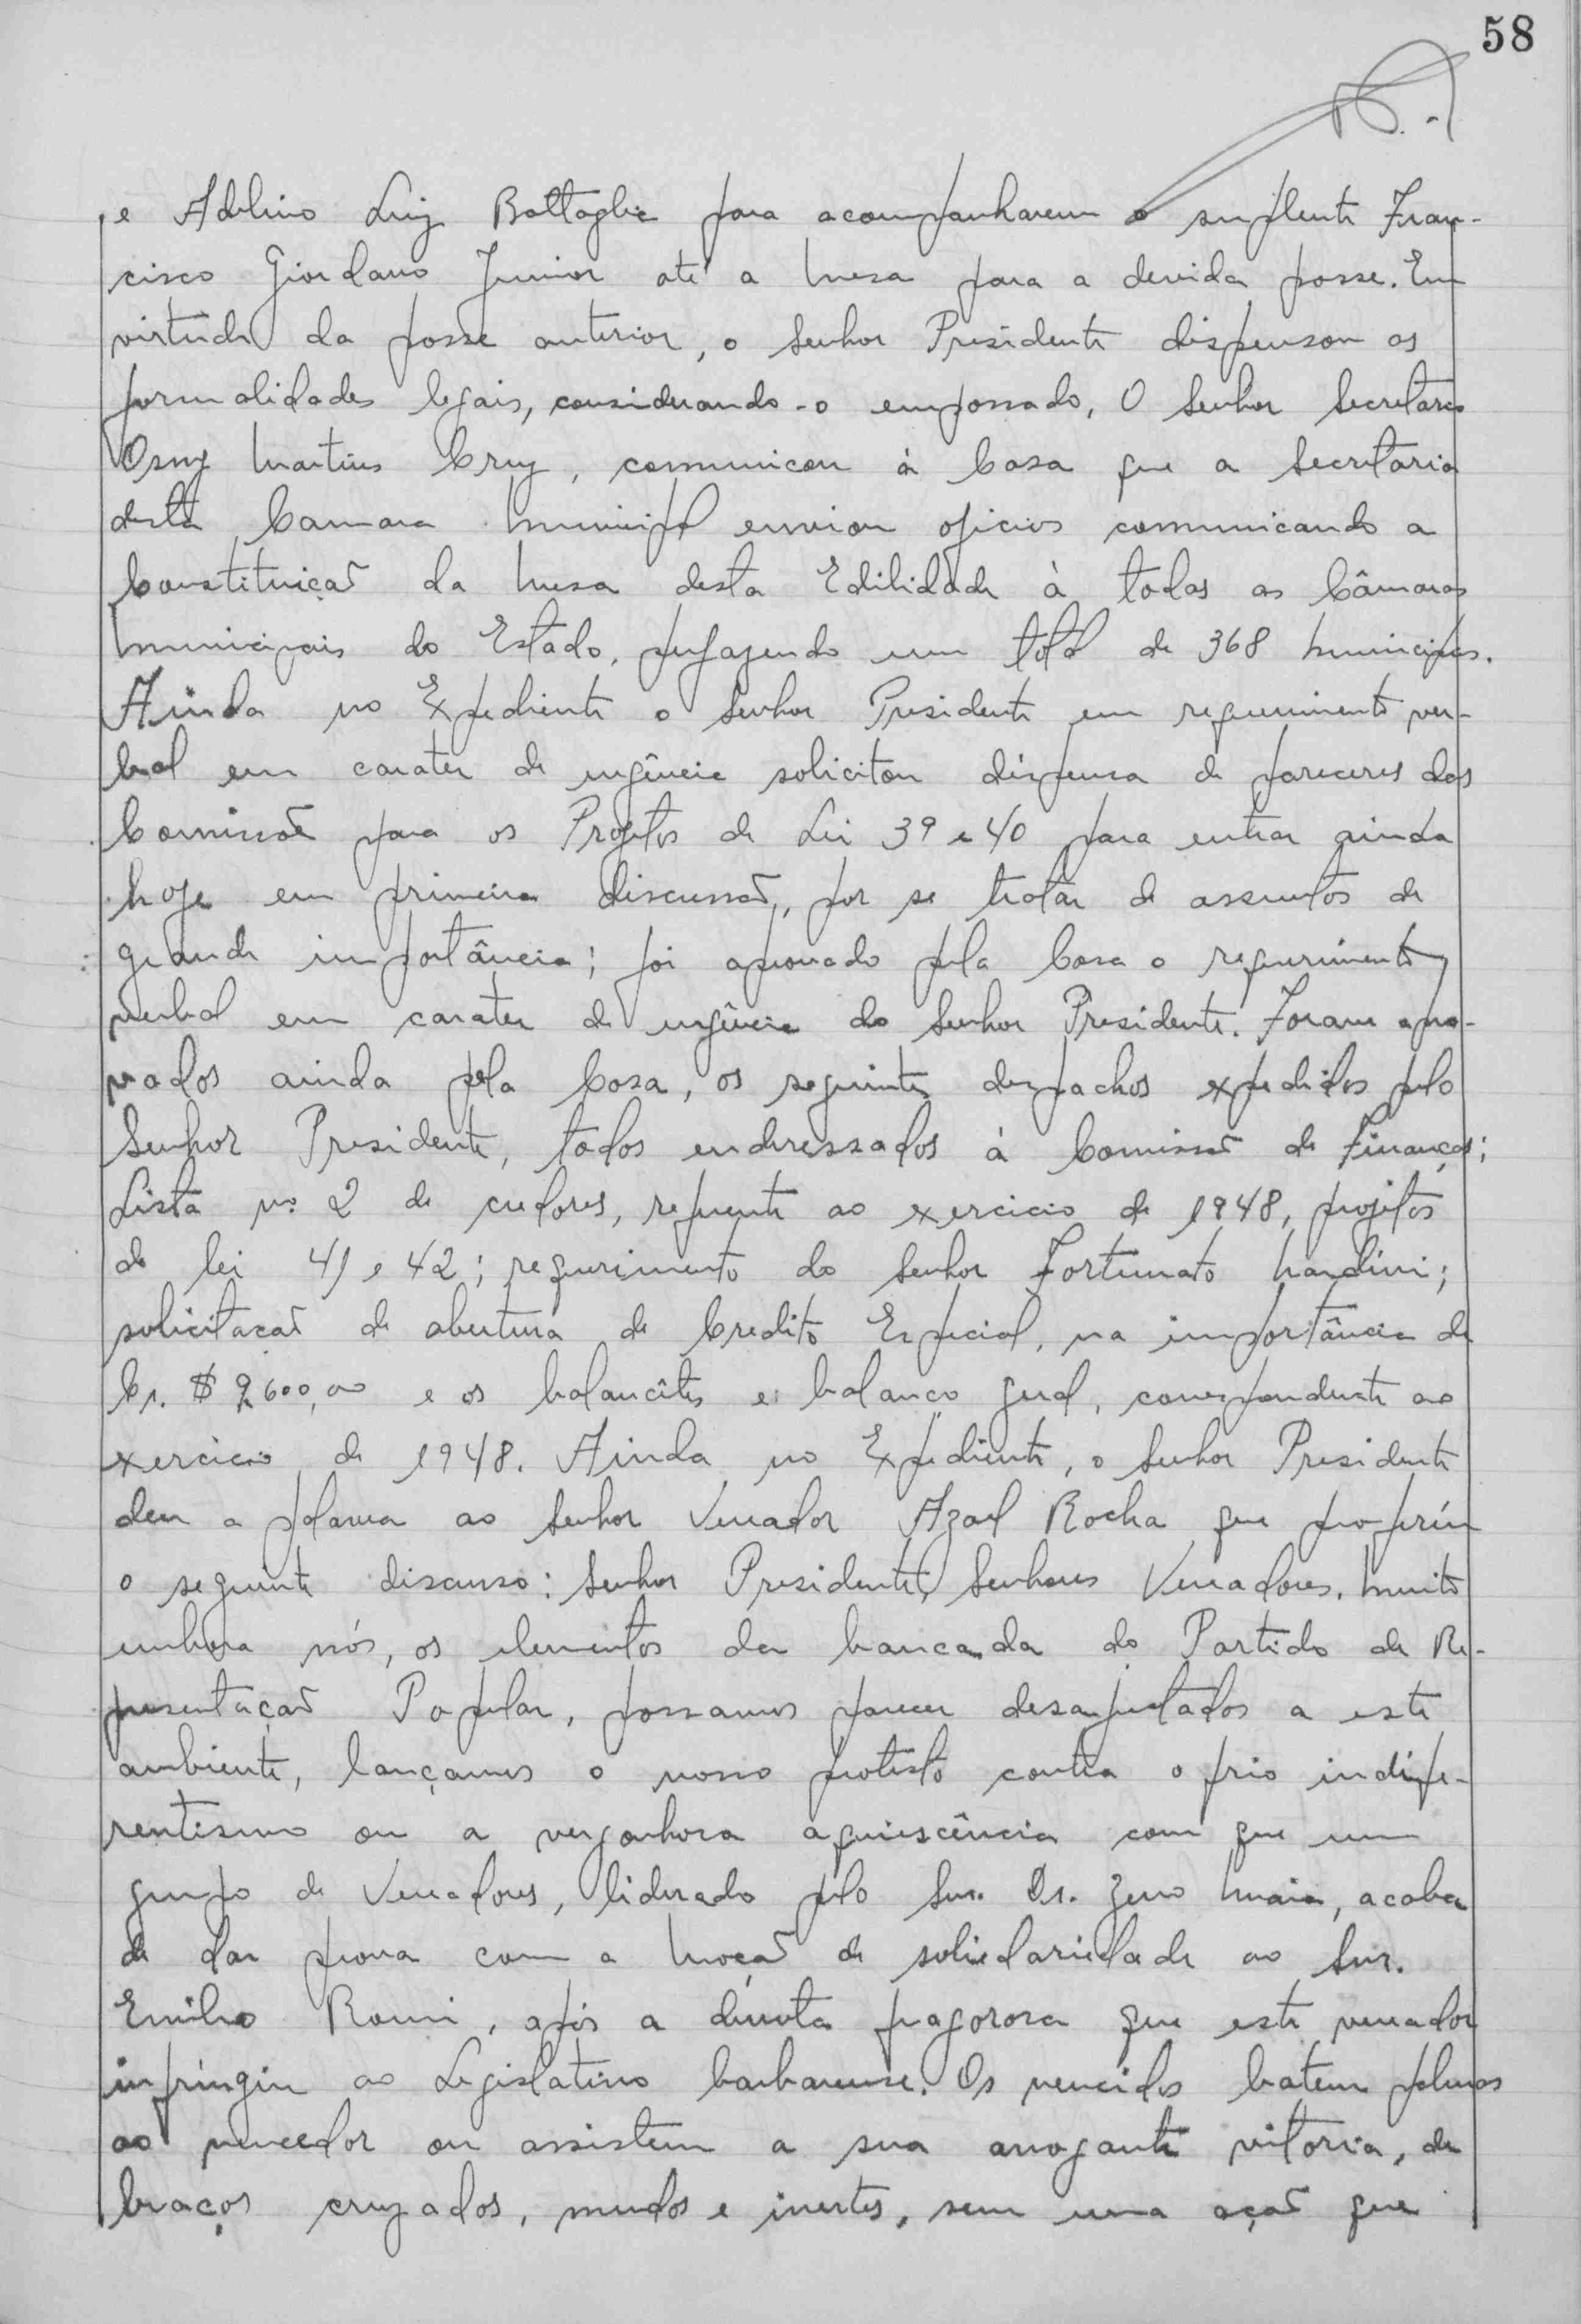 58
e Adelino Luiz Battaglia para acompanharem o suplente Fran-
cisco Giordano Junior até a Mesa para a devida posse. Em
virtude da posse anterior, o Senhor Presidente dispensou as
formalidades legais, considerando-o empossado, O Senhor Secretario
Osny Martins Cruz, comunicou à Casa que a Secretaria
desta Camara Municipal enviou oficios comunicando a
Constituição da Mesa desta Edilidade à todas as Câmaras
Municipais do Estado, perfazendo um total de 368 Municipios.
Ainda no Expediente o Senhor Presidente em requerimento ver-
bal em carater de urgência solicitou dispensa de pareceres das
Comissões para os Projetos de Lei 39 e 40 para entrar ainda
hoje em primeira discussão, por se tratar de assuntos de
grande importância; foi aprovado pela Casa o requerimento
verbal em carater de urgência do Senhor Presidente. Foram apro-
vados ainda pela Casa, os seguintes despachos expedidos pelo
Senhor Presidente, todos enderessados à Comissão de Finanças;
Lista nº 2 de credores, referente ao exercicio de 1948, projetos
de lei 41 e 42; requerimento do Senhor Fortunato Nardini;
solicitação de abertura de Credito Especial, na importância de
Cr. $ 9.600,00 e os balancêtes e balanço geral, correspondente ao
exercicio de 1948. Ainda no Expediente, o Senhor Presidente
deu a palavra ao Senhor Vereador Azael Rocha que proferiu
o seguinte discurso: Senhor Presidente, Senhores Vereadores. Muito
embora nós, os elementos da bancada do Partido de Re-
presentação Popular, possamos parecer desajustados a este
ambiente, lançamos o nosso protesto contra o frio indife-
rentismo ou a vergonhosa aquiescência com que um
grupo de Vereadores, liderado pelo Snr. Dr. Zeno Maia, acaba
de dar prova com a Moção de solidariedade ao Snr.
Emilio Romi, após a derrota fragorosa que este vereador
infringiu ao Legislativo barbarense. Os vencidos batem palmas
ao vencedor ou assistem a sua arrogante vitoria, de
braços cruzados, mudos e inertes, sem uma ação que